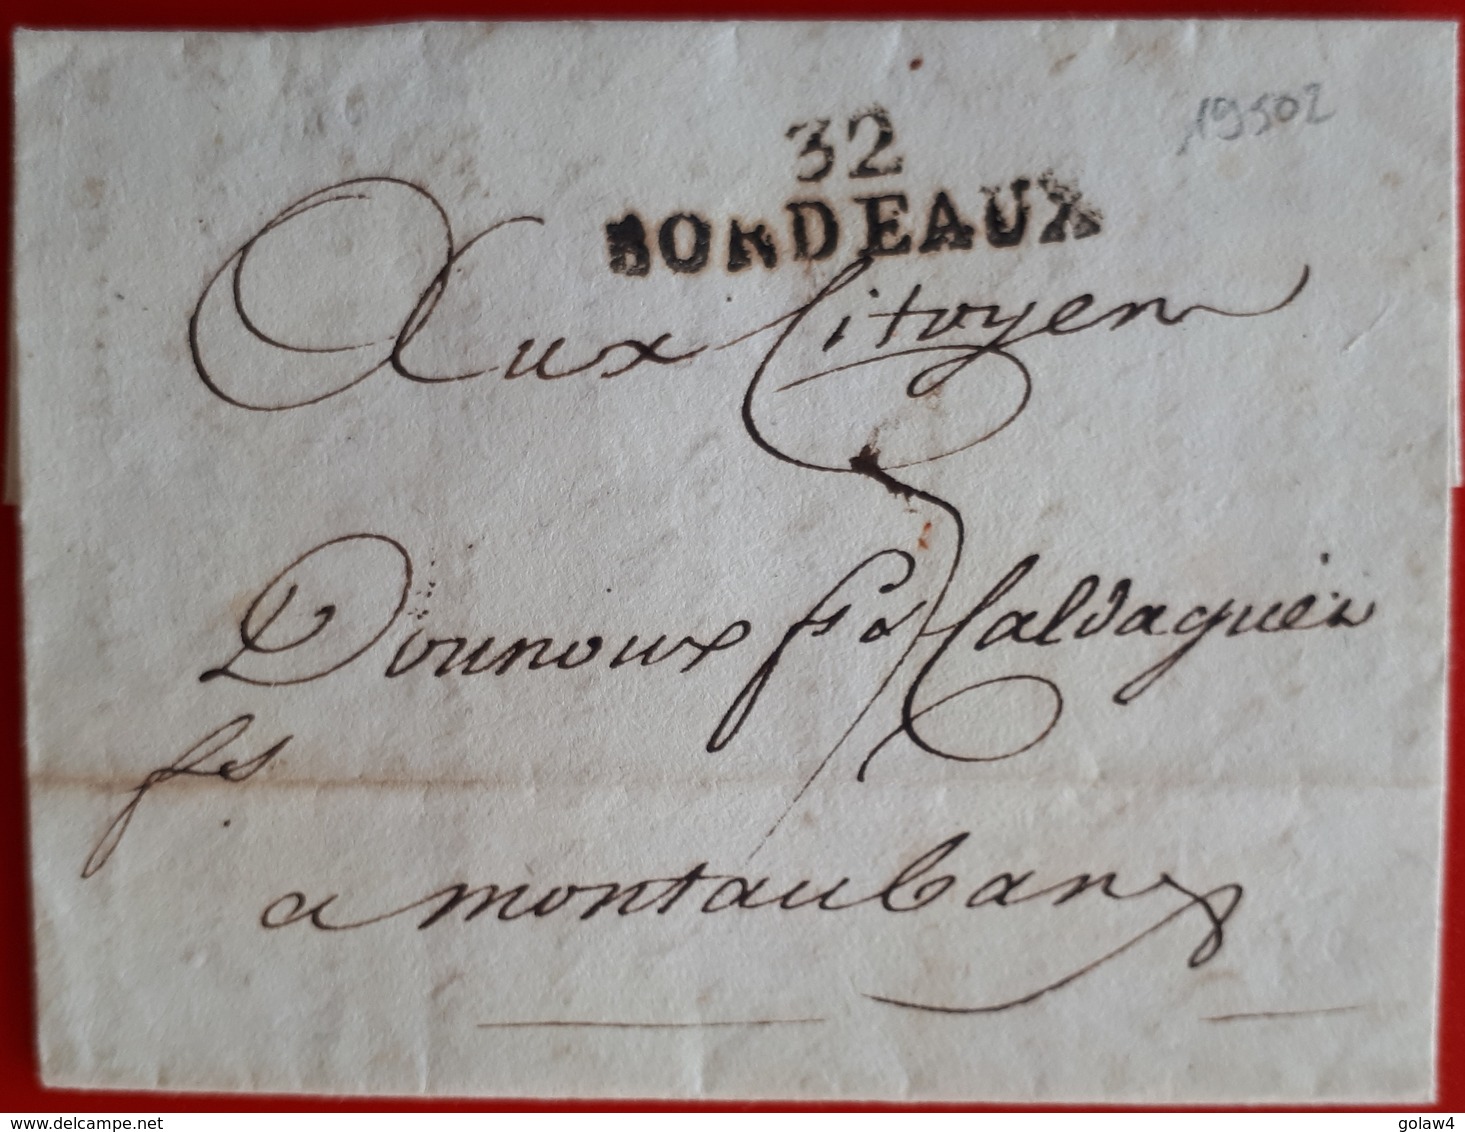 19502
32
BORDEAUX
Aux Citoyen
Dounoux fs & Caldaguès
fs
a montauban
delcampe.net
golaw4